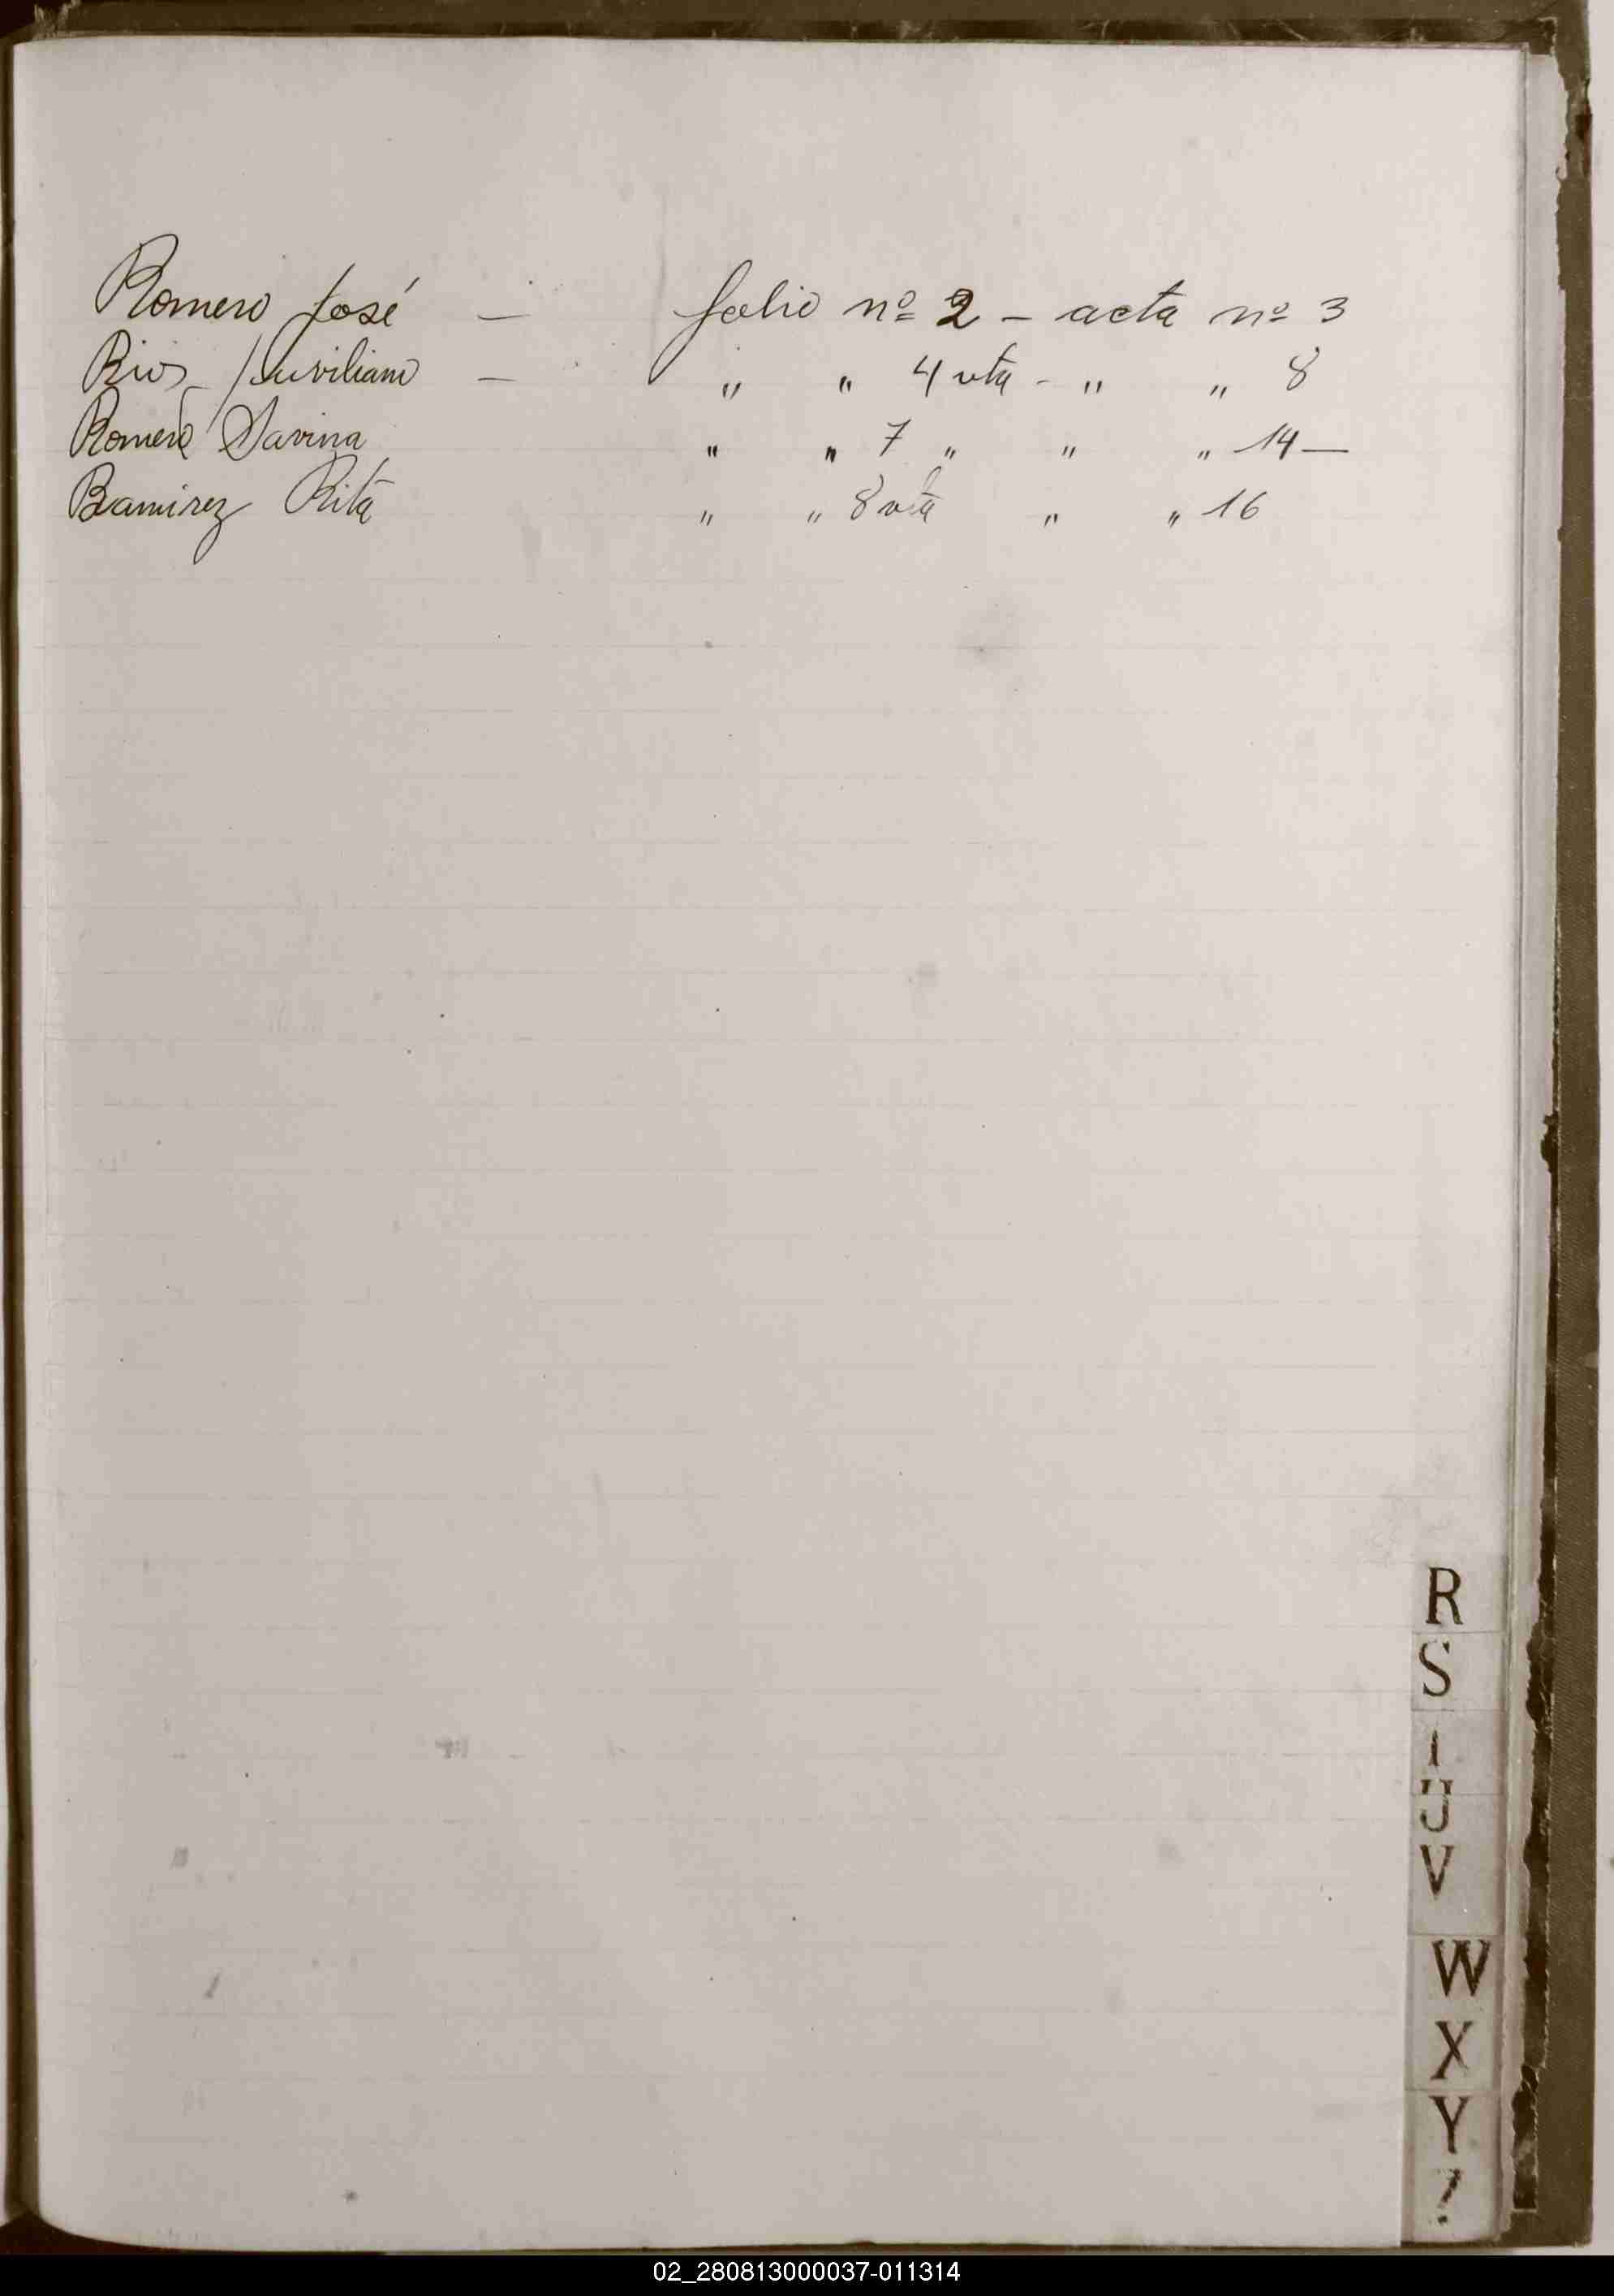 Romero José — folio nº 2 - acta nº 3
Rios — " " 4 vta - " " 8
Romero Savina " " 7 " " " 14 —
Ramirez Rita " " 8 vta " " 16
R
S
U
V
W
X
Y
02_280813000037-011314